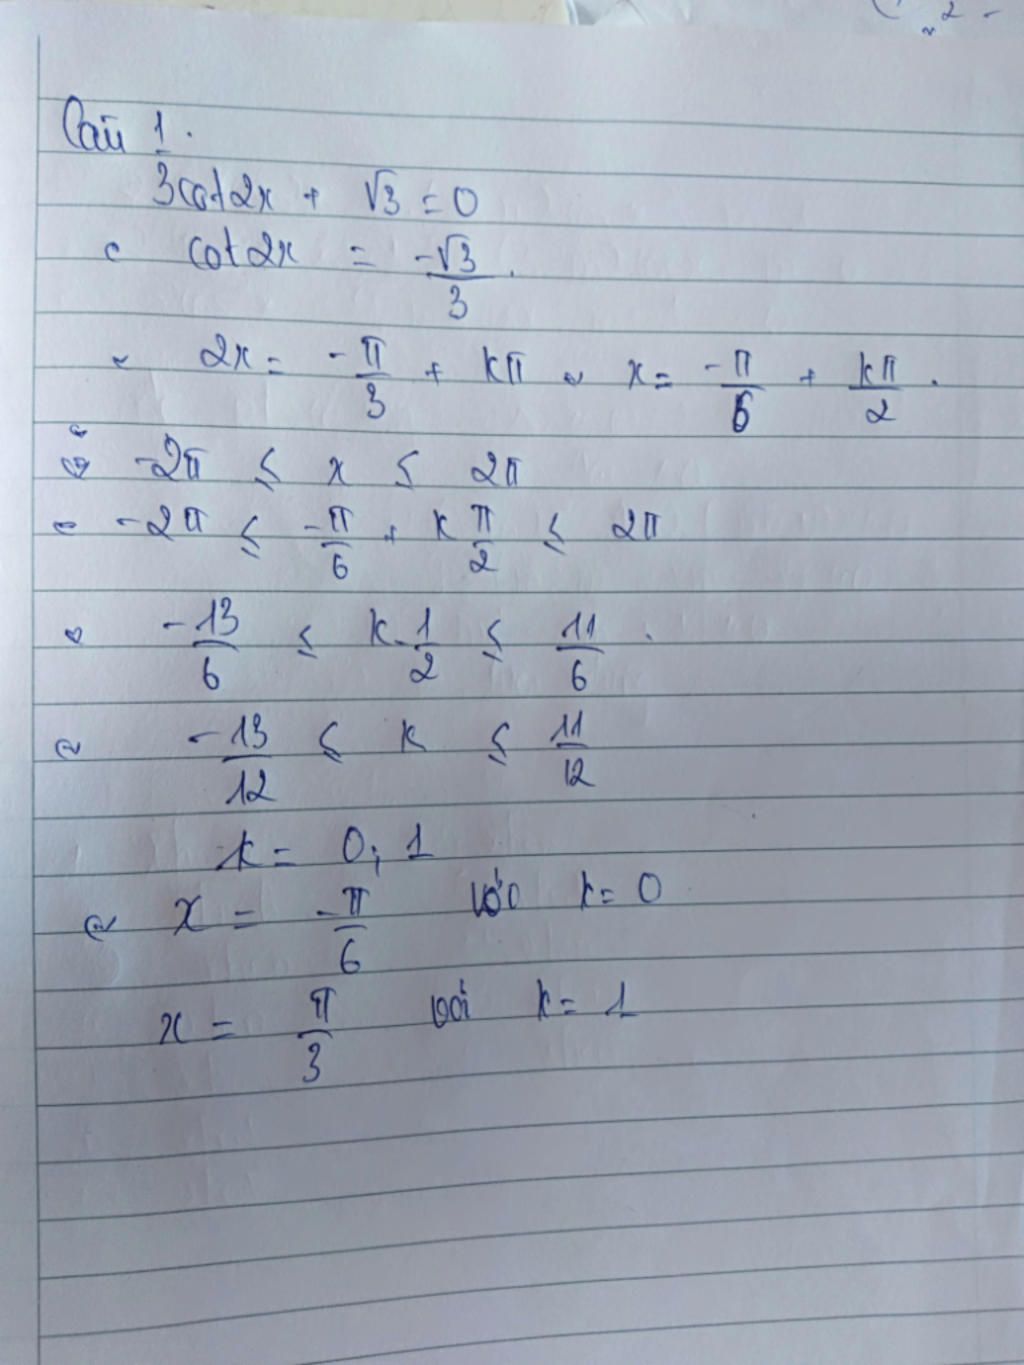 Câu 1.
3cot2x + √3 = 0
cot2x = -√3/3.
2x = -π/3 + kπ ⇔ x = -π/6 + kπ/2.
-2π ≤ x ≤ 2π
⇔ -2π ≤ -π/6 + k π/2 ≤ 2π
⇔ -13/6 ≤ k.1/2 ≤ 11/6.
⇔ -13/12 ≤ k ≤ 11/12
k = 0; 1
⇔ x = -π/6 với k = 0
x = π/3 với k = 1